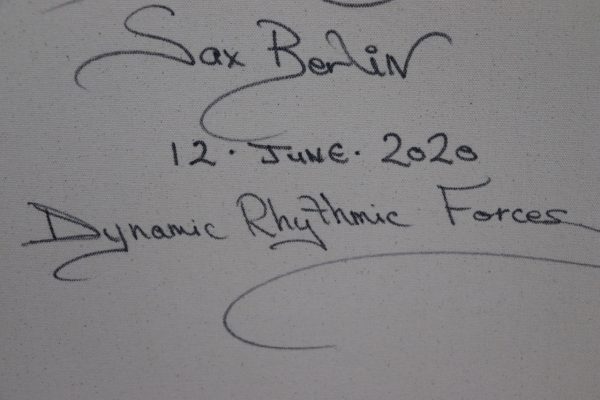 Sax Berlin
12. June. 2020
Dynamic Rhythmic Forces